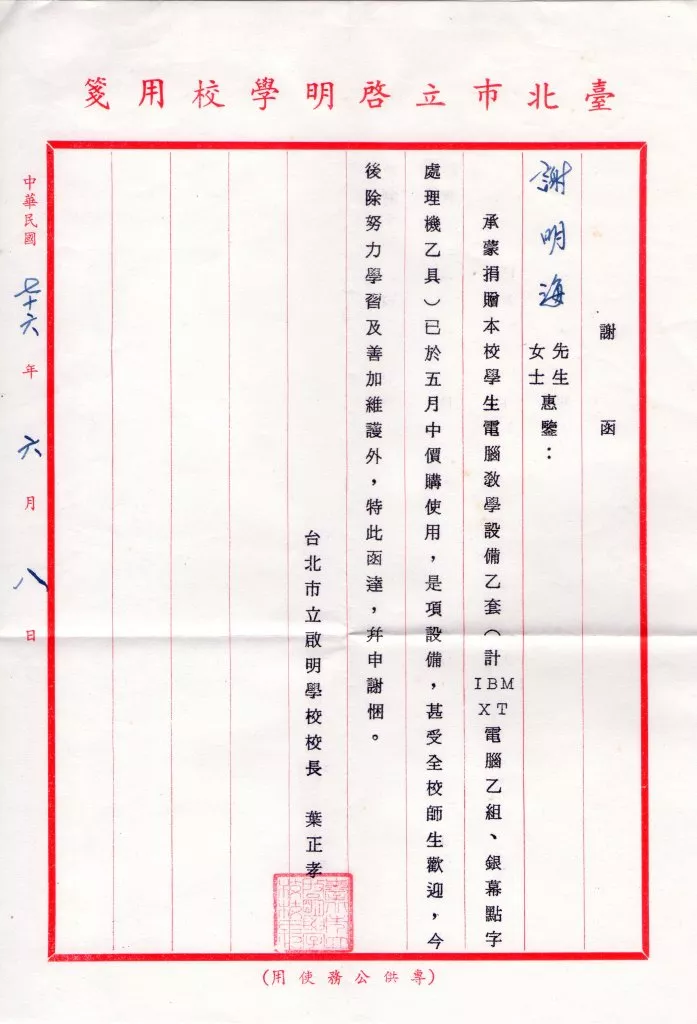 臺北市立啓明學校用箋
謝　函
謝明海　先生
女士　惠鑒：
承蒙捐贈本校學生電腦教學設備乙套（計 IBM XT 電腦乙組、銀幕點字
處理機乙具）已於五月中價購使用，是項設備，甚受全校師生歡迎，今
後除努力學習及善加維護外，特此函達，幷申謝悃。
台北市立啟明學校校長　葉正孝
中華民國七十六年六月八日
（專供公務使用）